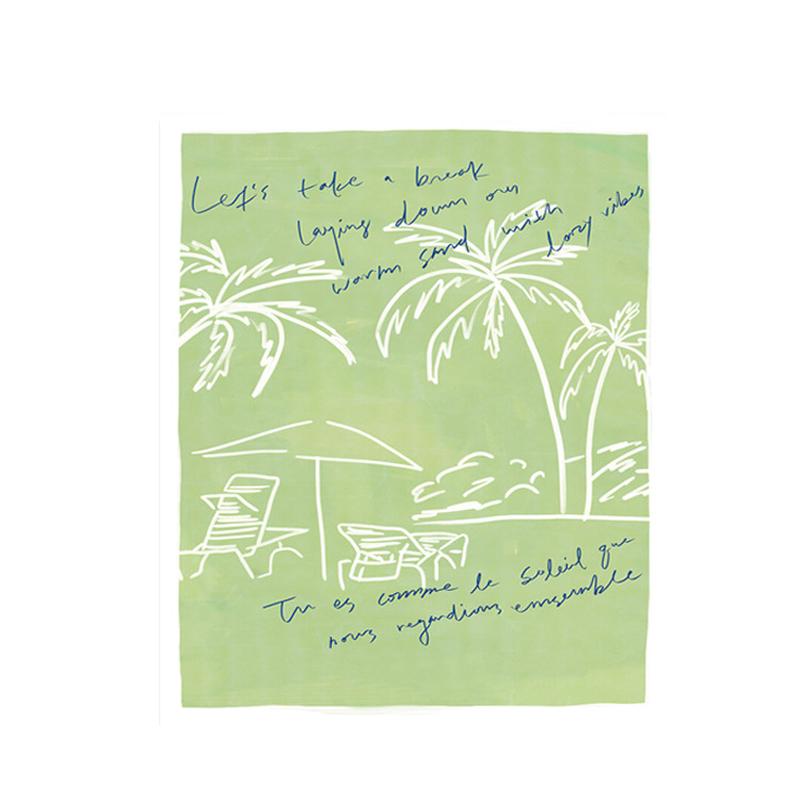 Let's take a break
laying down on
warm sand with
lazy vibes
Tu es comme le soleil que
nous regardions ensemble